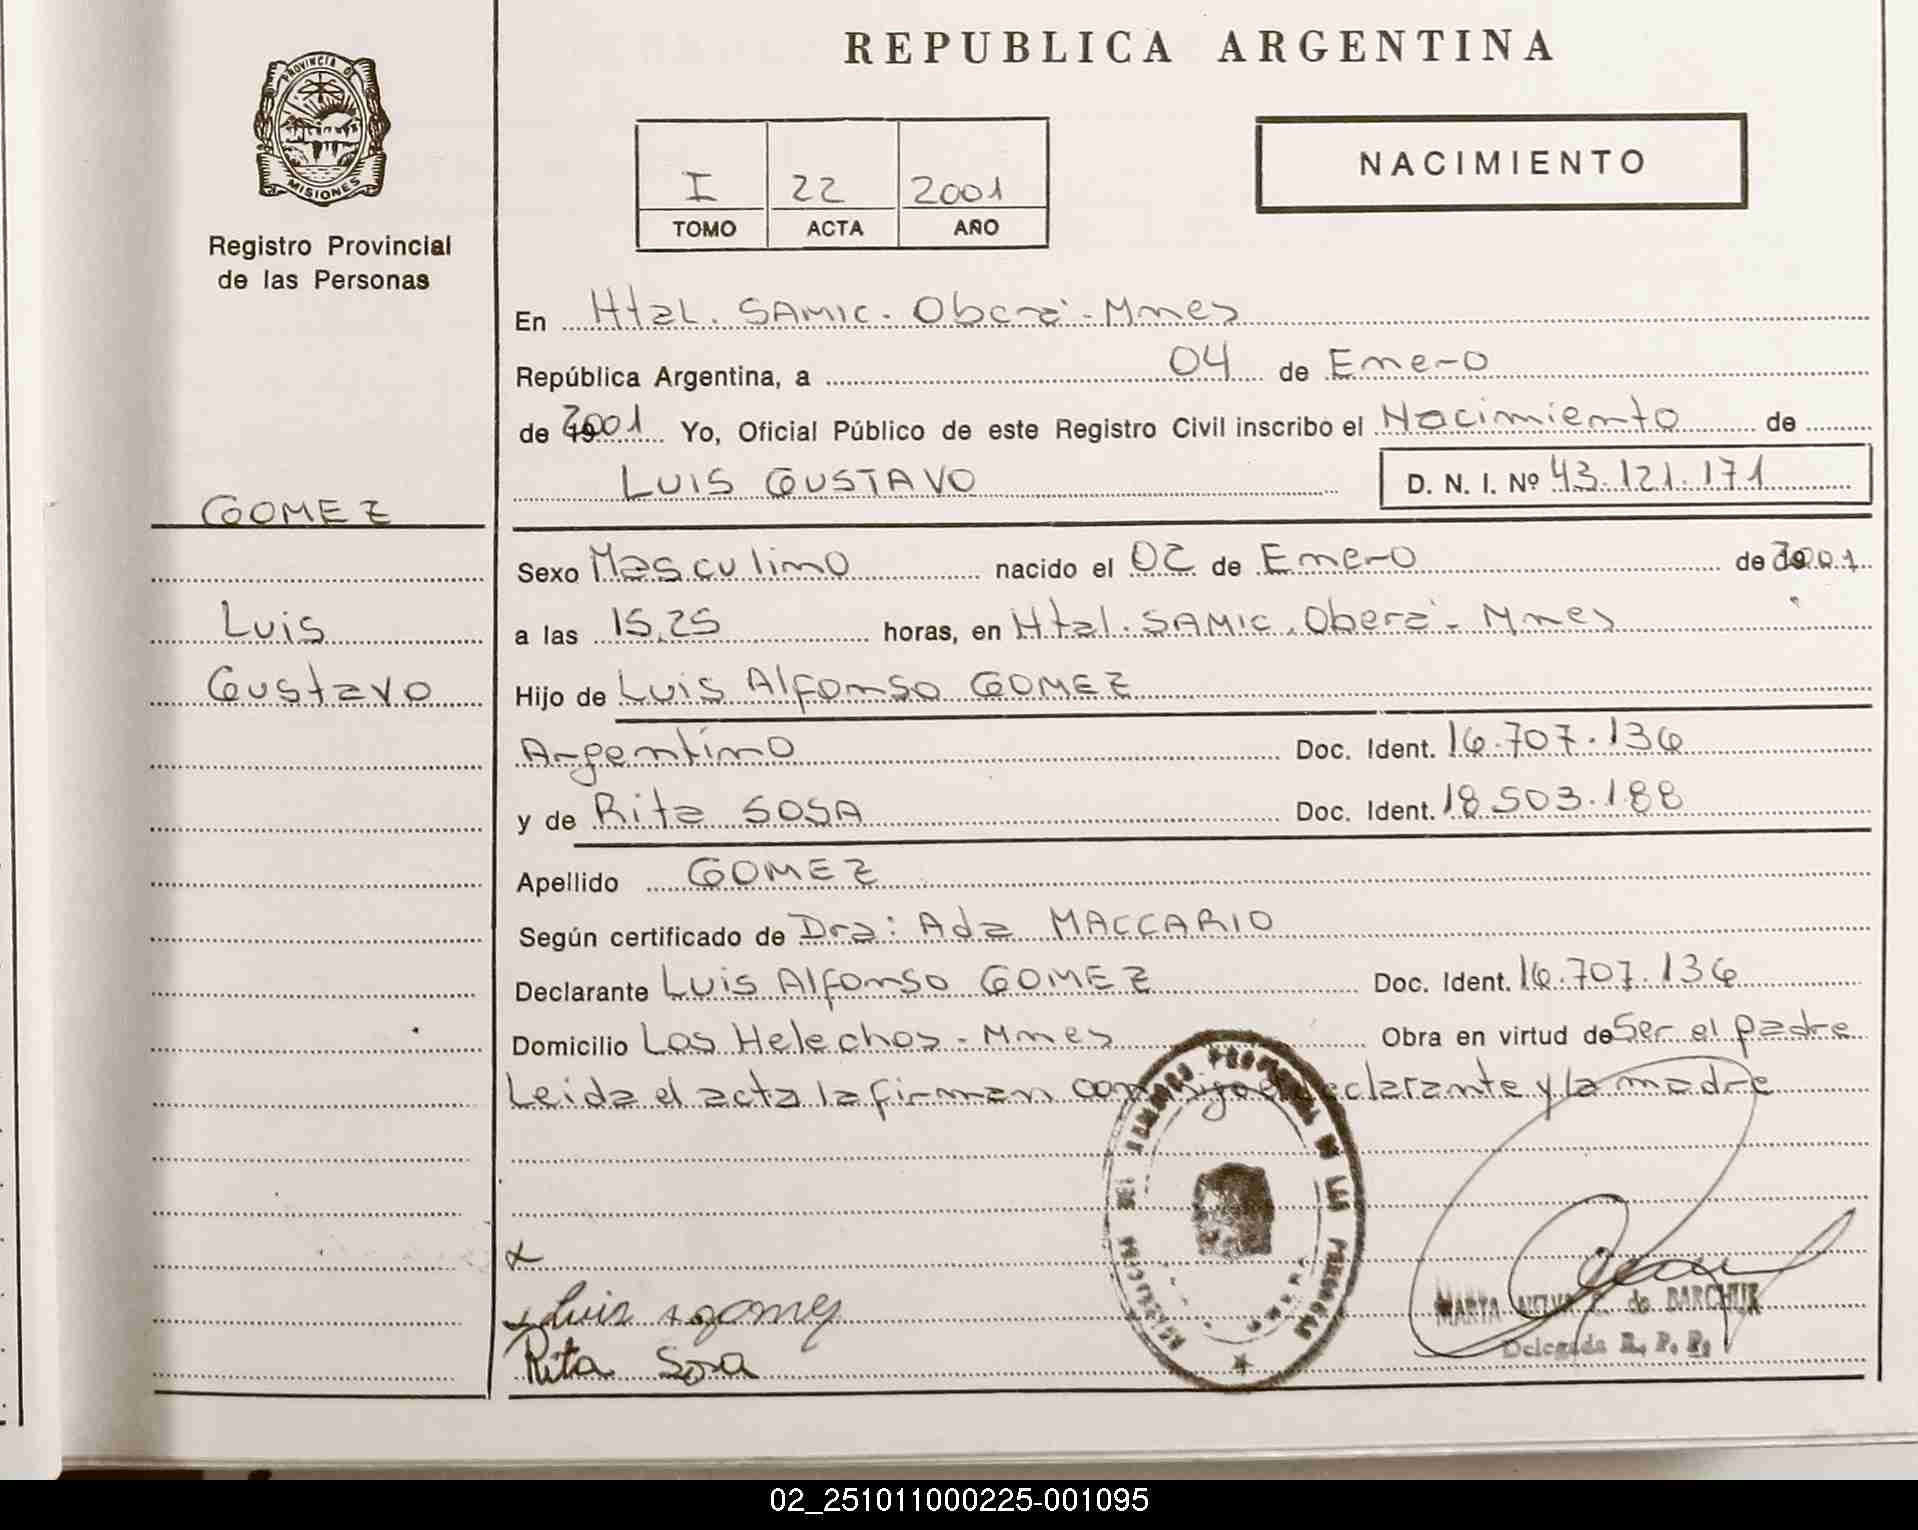 REPUBLICA ARGENTINA
PROVINCIA DE MISIONES
Registro Provincial
de las Personas
I 22 2001
TOMO ACTA AÑO
NACIMIENTO
En Htal. SAMIC. Oberá - Mnes
República Argentina, a 04 de Enero
de 2001 Yo, Oficial Público de este Registro Civil inscribo el Nacimiento de
LUIS GUSTAVO D. N. I. Nº 43.121.171
GOMEZ
Luis
Gustavo
Sexo Masculino nacido el 02 de Enero de 2001
a las 15,25 horas, en Htal. SAMIC. Oberá - Mnes
Hijo de Luis Alfonso GOMEZ
Argentino Doc. Ident. 16.707.136
y de Rita SOSA Doc. Ident. 18.503.188
Apellido GOMEZ
Según certificado de Dra: Ada MACCARIO
Declarante Luis Alfonso GOMEZ Doc. Ident. 16.707.136
Domicilio Los Helechos - Mnes Obra en virtud de Ser el padre
Leida el acta la firman conmigo el declarante y la madre
x
x Luis A gomez
Rita Sosa
MARTA de BARCHUK
Delegada R. P. P.
02_251011000225-001095